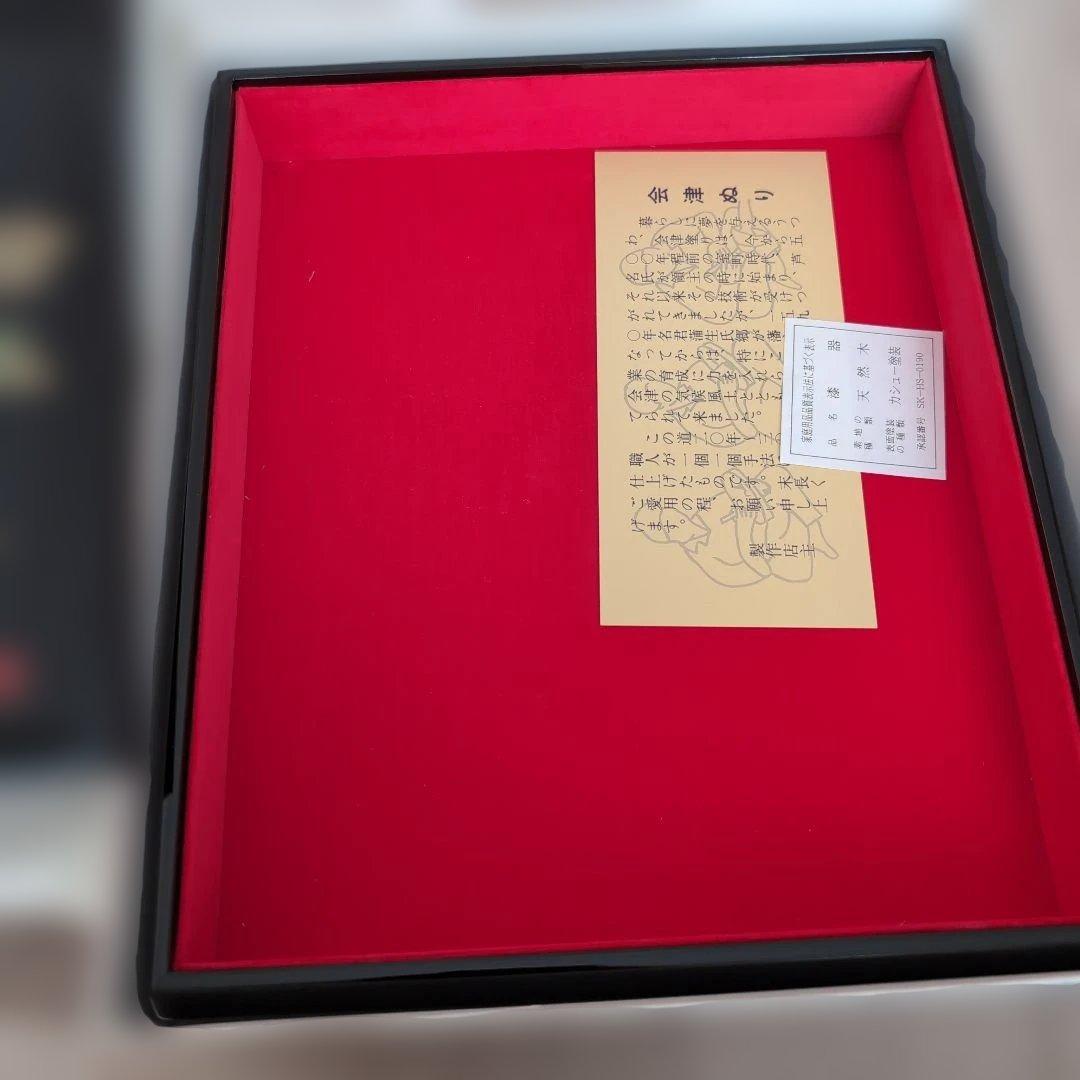 会津ぬり
暮らしに夢を与えるうつ
わ、会津塗りは、今から五
〇〇年程前の室町時代、芦
名氏が領主の時に始まり、
それ以来その技術が受けつ
がれてきましたが、一五九
〇年名君蒲生氏郷が藩
なってからは、特にこ
業の育成に力を入れら
会津の気候風土ととも
てられて来ました。
この道二〇年
職人が一個一個手法
仕上げたものです。末長く
ご愛用の程、お願い申し上
げます。
製作店主
家庭用品品質表示法に基づく表示
品名 漆器
素地の種類 天然木
表面塗装の種類 カシュー塗装
承認番号 SK-HS-0190